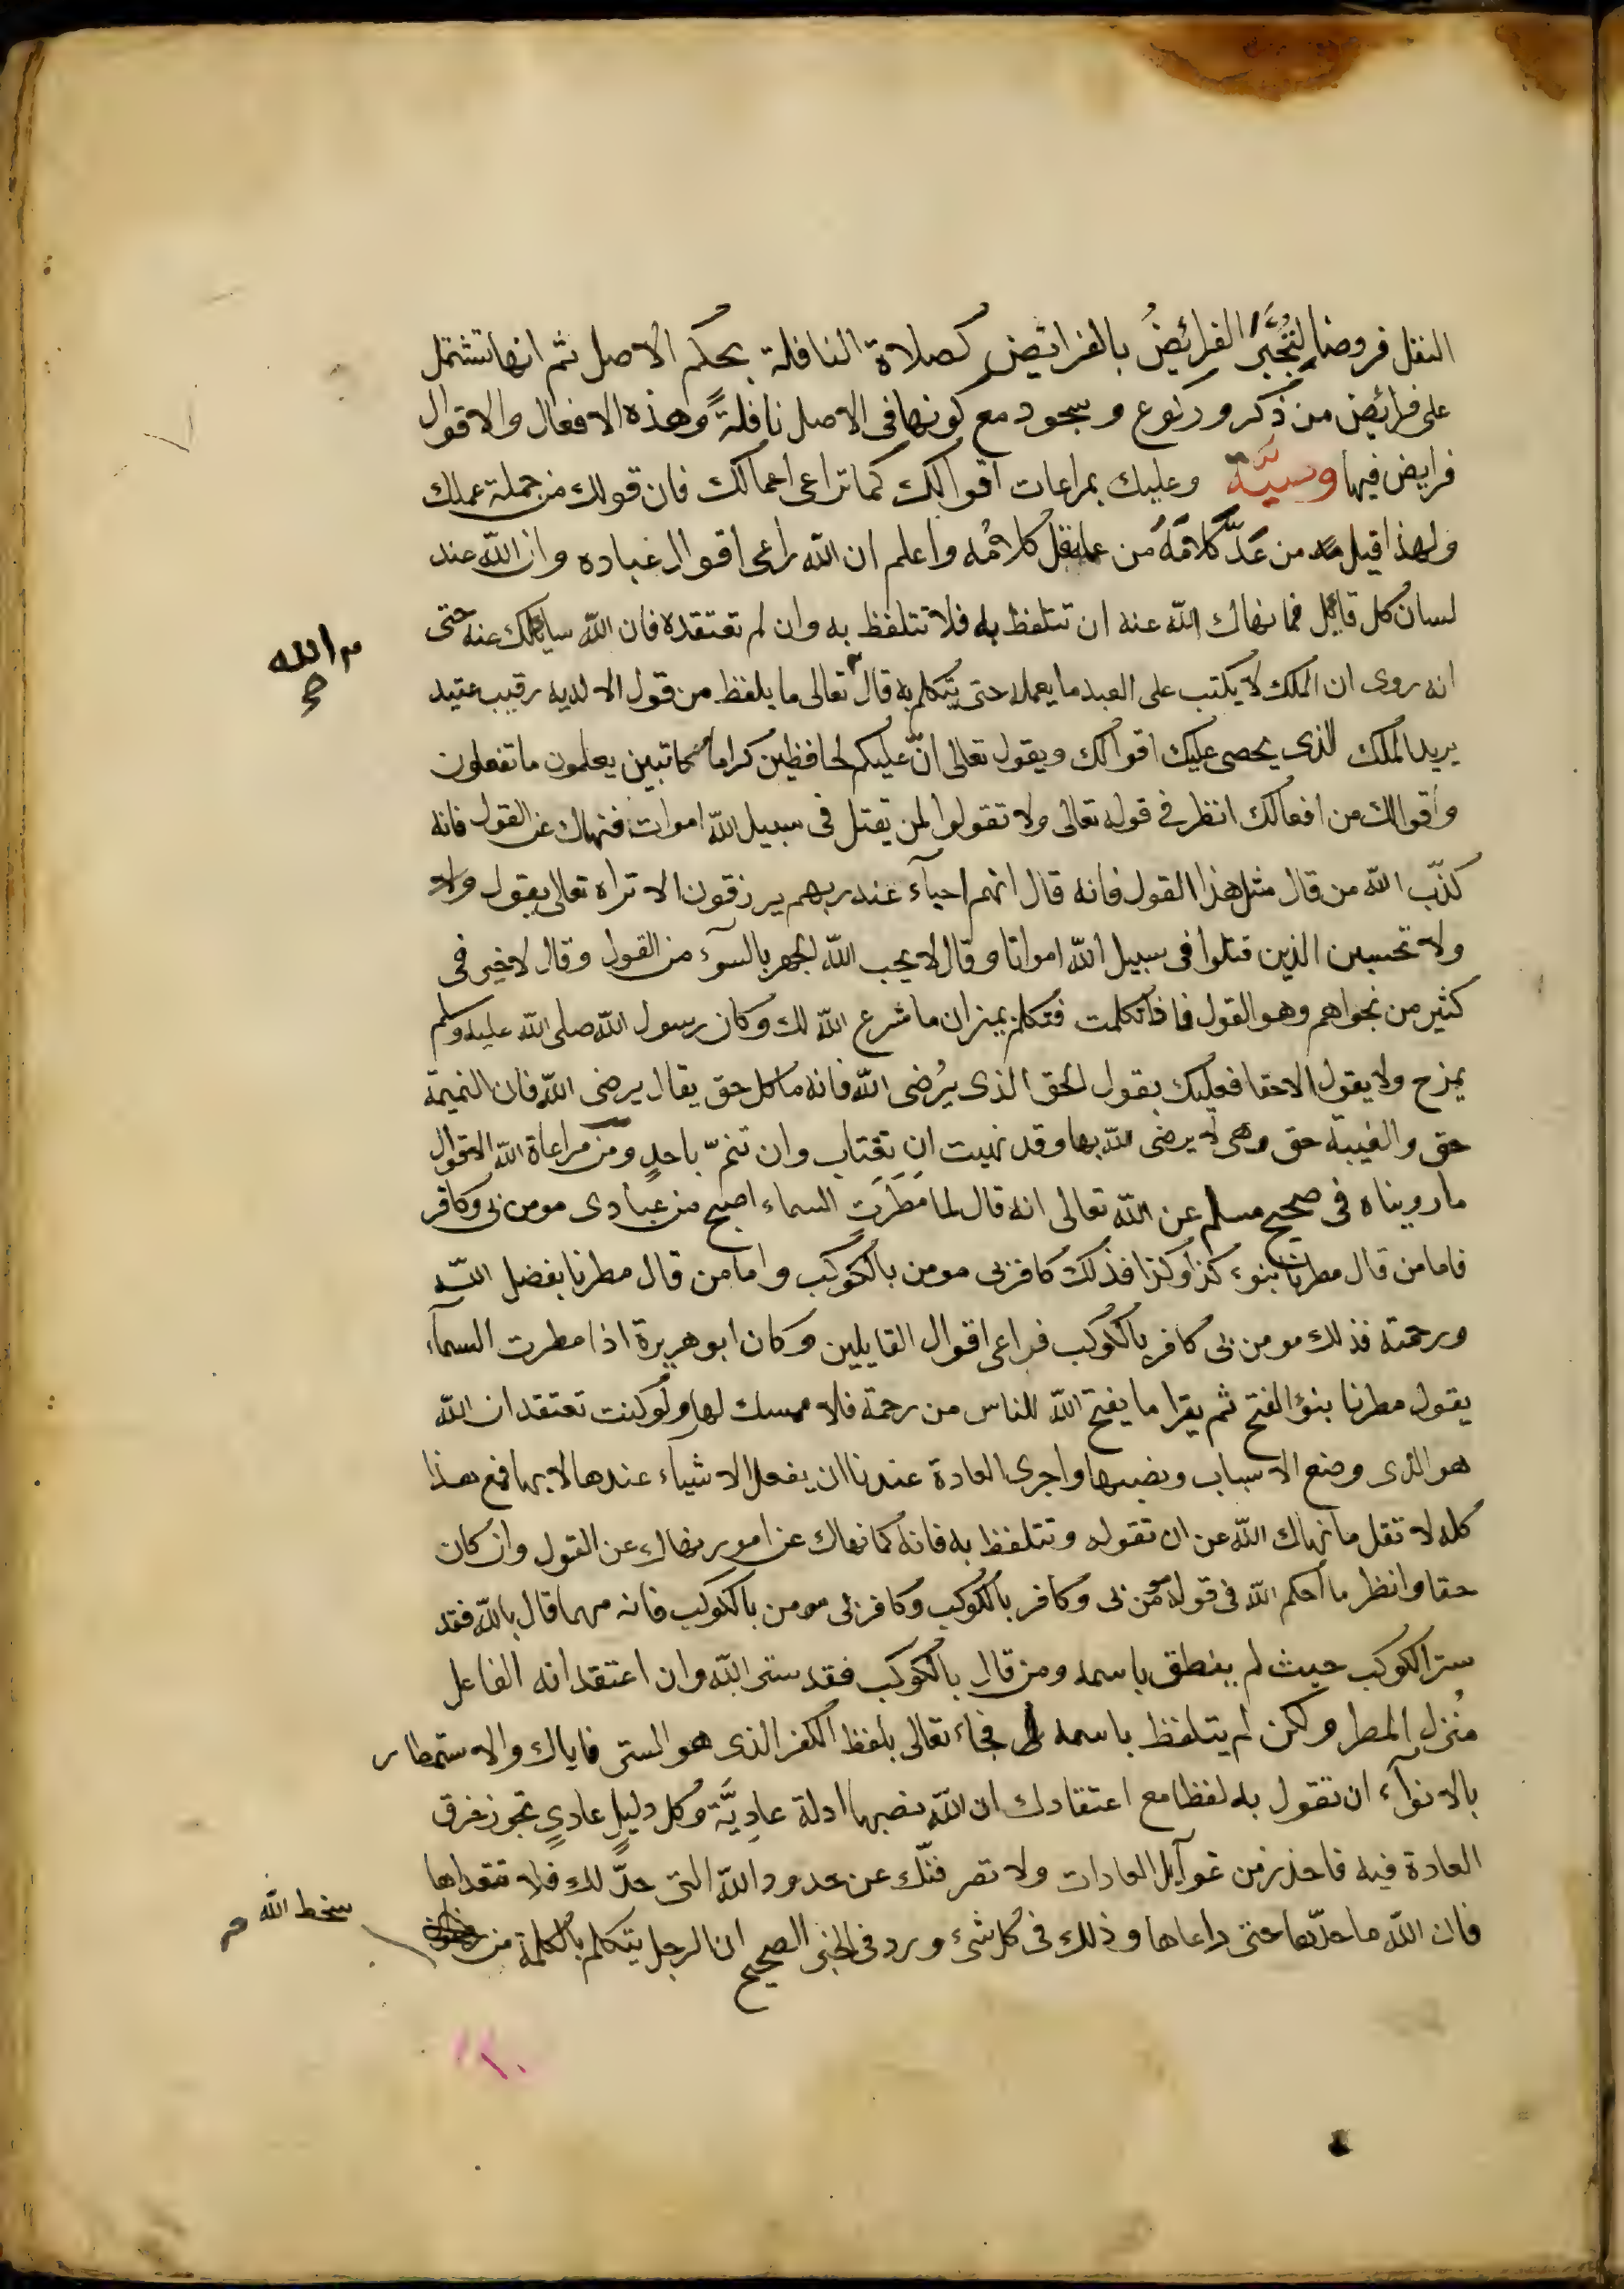 النفل فروضا لِتُجْبَرَ الفرائضُ بالفرائض كصلاة النافلة بحكم الاصل ثم انها تشتمل
على فرائض من ذكر وركوع وسجود مع كونها في الاصل نافلةً وهذه الافعال والاقوال
فرايض فيها وصيَّة وعليك بمراعات اقوالك كما تراعي اعمالك فان قولك من جملة عملك
ولهذا قيل من عَدَّ كلامَهُ من عمله قل كلامُه واعلم ان الله راعى اقوال عباده وان الله عند
لسان كل قائل فما نهاك الله عنه ان تتلفظ به فلا تتلفظ به وان لم تعتقده فان الله سائلك عنه حتى
انه روى ان الملك لا يكتب على العبد ما يعمله حتى يتكلم به قال تعالى ما يلفظ من قول الا لديه رقيب عتيد
م الله
يريد الملك الذي يحصى عليك اقوالك ويقول تعالى انّ عليكم لحافظين كراما كاتبين يعلمون ما تفعلون
واقوالك من افعالك انظر في قوله تعالى ولا تقولوا لمن يقتل في سبيل الله اموات فنهاك عن القول فانه
كذّب الله من قال مثل هذا القول فانه قال انهم احيآء عند ربهم يرزقون الا تراه تعالى يقول ولا
ولا تحسبن الذين قتلوا في سبيل الله امواتا وقال لا يحب الله الجهر بالسوء من القول وقال لا خير في
كثير من نجواهم وهو القول فاذا تكلمت فتكلم بميزان ما شرع الله لك وكان رسول الله صلى الله عليه وسلم
يمزح ولا يقول الا حقا فعليك بقول الحق الذي يُرضى الله فانه ما كل حق يقال يرضى الله فان النميمة
حق والغيبة حق وهي لا يرضى الله بها وقد نهيت ان تغتاب وان تنمّ باحدٍ ومن مراعاة الله الاقوال
ما رويناه في صحيح مسلم عن الله تعالى انه قال لما مَطَرَت السماء اصبح من عبادى مومن بي وكافر
فاما من قال مطرنا بنوء كذا وكذا فذلك كافر بي مومن بالكوكب واما من قال مطرنا بفضل الله
ورحمته فذلك مومن بي كافر بالكوكب فراعى اقوال القايلين وكان ابو هريرة اذا مطرت السمآء
يقول مطرنا بنؤ الفتح ثم يقرا ما يفتح الله للناس من رحمة فلا ممسك لها ولو كنت تعتقد ان الله
هو الذى وضع الاسباب ونصبها واجرى العادة عندنا ان يفعل الاشياء عندها لا بها فمع هذا
كله لا تقل ما نهاك الله عن ان تقوله وتتلفظ به فانه كما نهاك عن امور نهاك عن القول وان كان
حقا وانظر ما احكم الله في قوله مومن بي وكافر بالكوكب وكافر بي مومن بالكوكب فانه مهما قال بالله فقد
ستر الكوكب حيث لم ينطق باسمه ومن قال بالكوكب فقد ستر الله وان اعتقد انه الفاعل
مُنزل المطر ولكن لم يتلفظ باسمه فجاء تعالى بلفظ الكفر الذى هو الستر فاياك والاستمطار
بالانوآء ان تقول به لفظا مع اعتقادك ان الله نصبها ادلة عاديَّة وكل دليلٍ عاديٍ تجوز خرق
العادة فيه فاحذر من غوآيل العادات ولا تصرفنّك عن حدود الله التى حدّ لك فلا تتعداها
فان الله ما حدّها حتى راعاها وذلك في كل شئ ورد في الخبر الصحيح ان الرجل يتكلم بالكلمة من
سخط الله م
١٠